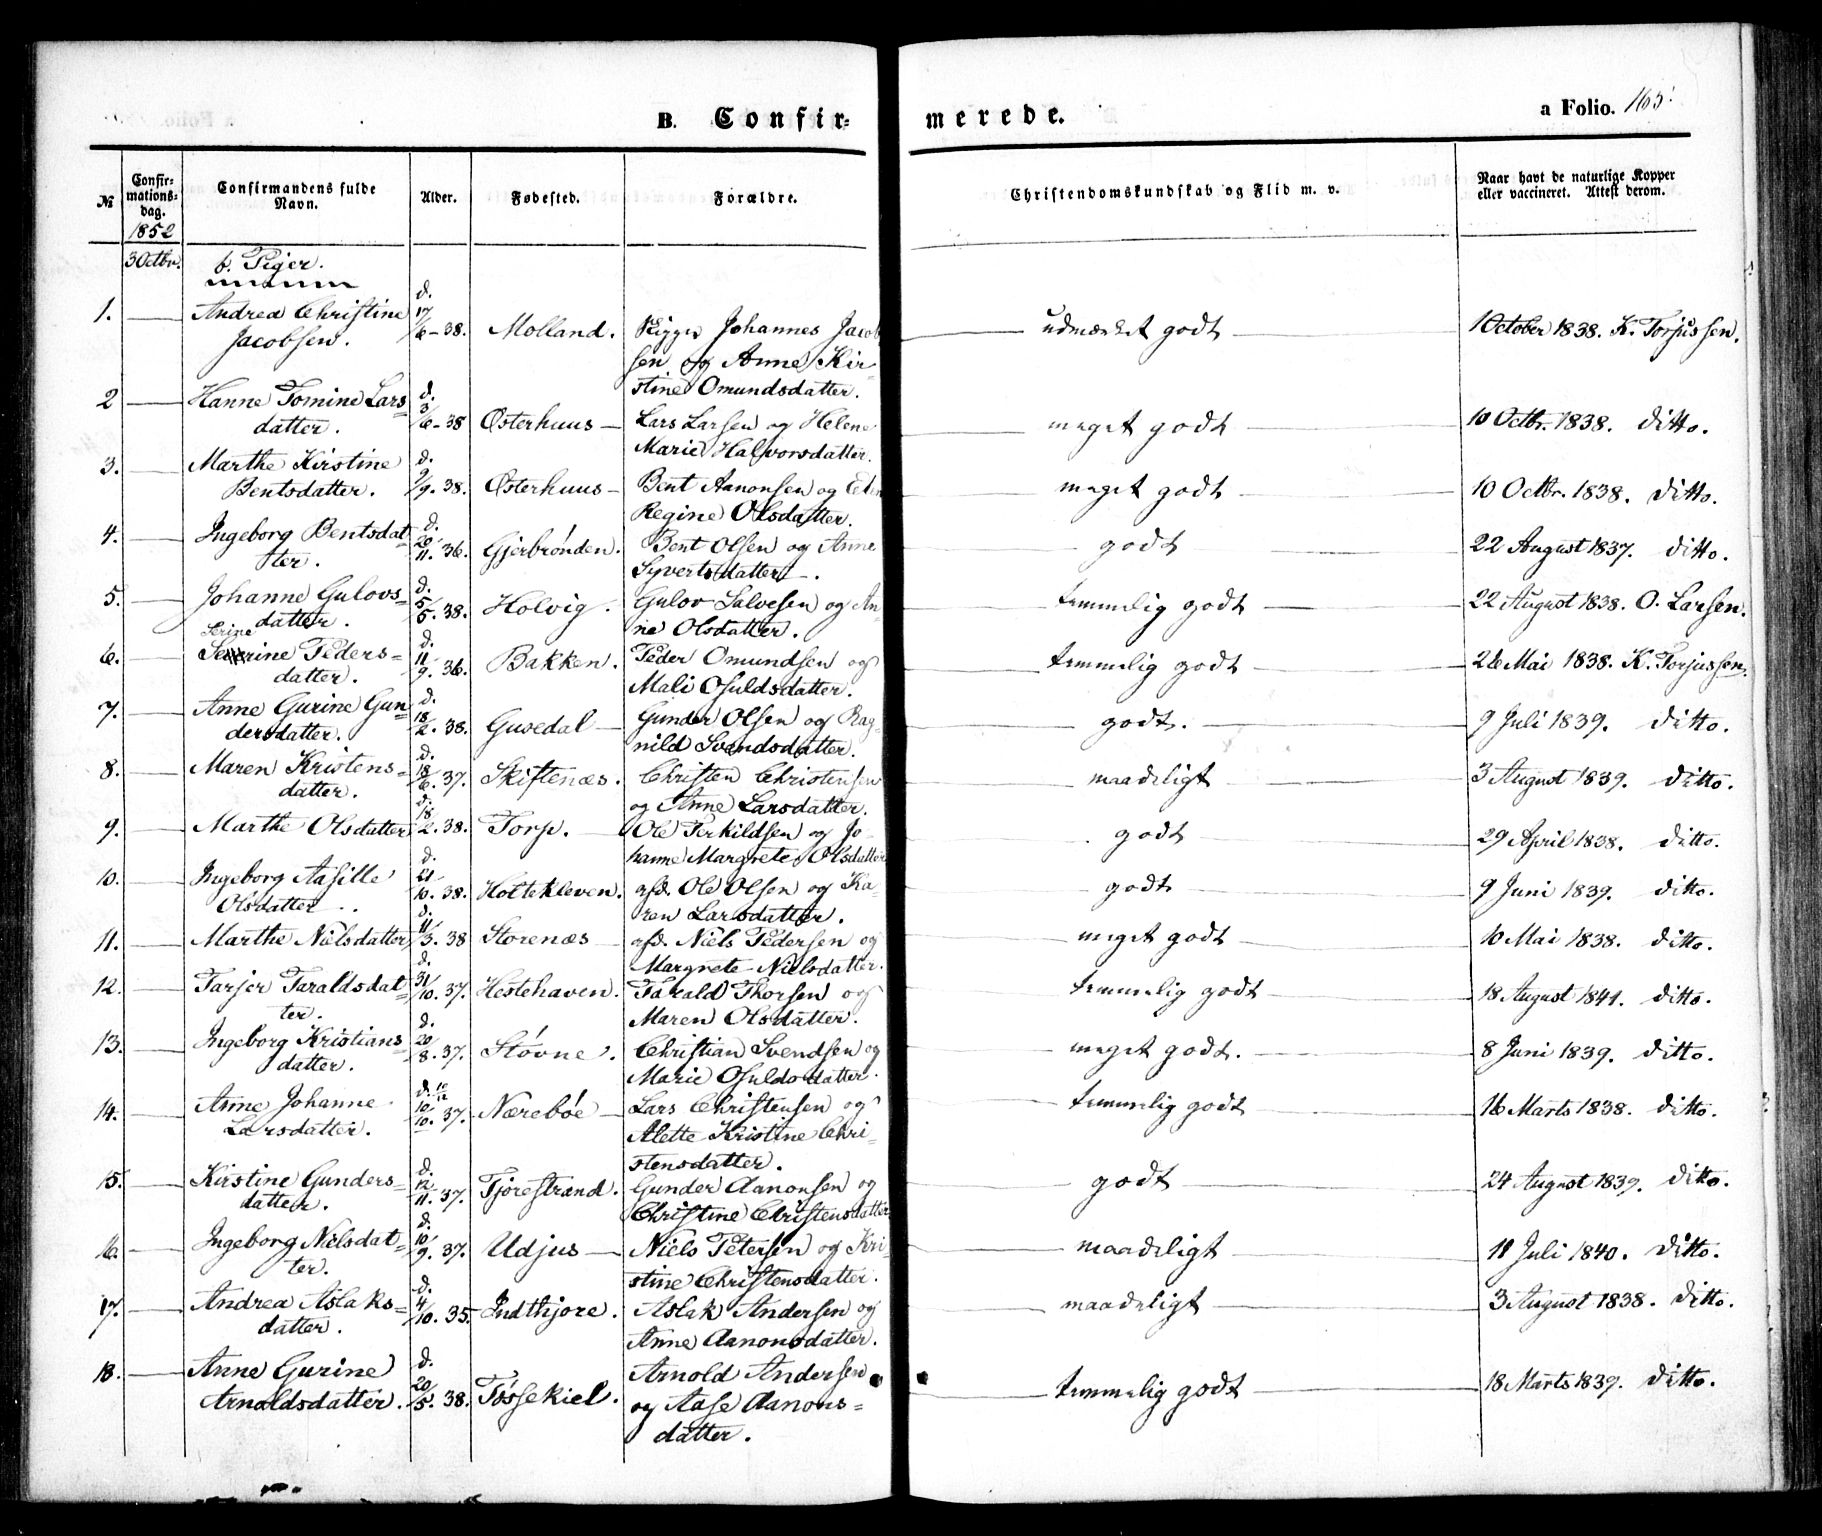 B. Confirmerede. a Folio. 165.
№ Confirmationsdag. 1852 Confirmandens fulde Navn. Alder. Fødested. Forældre. Christendomskundskab og Flid m. v. Naar havt de naturlige Kopper eller vaccineret. Attest derom.
3 Octbr. b. Piger.
1. Andrea Christine d. 17/6 - 38. Molland. Rigger Johannes Jacob udmærket godt 1 October 1838. K. Torjussen.
Jacobsen. sen og Anne Kir-
stine Omundsdatter.
2 Hanne Tomine Lars= d. 3/6 - 38 Østerhuus Lars Larsen og Helene meget godt 10 Octbr. 1838. ditto.
datter. Marie Halvorsdatter.
3. Marthe Kirstine d. 9/9. 38. Østerhuus Bent Aanonsen og meget godt 10 Octbr. 1838. ditto.
Bentsdatter. Regine Olsdatter.
4. Ingeborg Bentsdat= d. 20/11. 36. Gjerbrønden. Bent Olsen og Anne godt 22 August 1837. ditto.
ter. Syvertsdatter.
5. Johanne Gulovs= d. 5/5. 38. Holvig. Gulov Salvesen og An= temmelig godt 22 August 1838. O. Larsen.
datter. ne Olsdatter.
Serine
6. Severine Peders= d. 11/9. 36. Bakken. Peder Omundsen og temmelig godt 26 Mai 1838. K. Torjussen.
datter. Mali Osuldsdatter.
7. Anne Gurine Gun= d. 18/2. 38. Gusedal Gunder Olsen og Rag= godt. 9 Juli 1839. ditto.
dersdatter. nild Svendsdatter.
8. Maren Kristens= d. 18/6. 37. Skiftenæs. Christen Christensen maadeligt 3 August 1839. ditto.
datter. og Anne Larsdatter.
9. Marthe Olsdatter d. 18/2. 38. Torp. Ole Terkildsen og Jo= godt 29 April 1838. ditto.
hanne Margrete Olsdatter
10. Ingeborg Aasille d. 21/10. 38. Holtekleven. afd. Ole Olsen og Ka= godt 9 Juni 1839. ditto.
Olsdatter. ren Larsdatter.
11. Marthe Nielsdatter d. 11/3. 38 Storenæs afd. Niels Pedersen og meget godt 10 Mai 1838. ditto.
Margrete Nielsdatter.
12. Tarjer Taraldsdat= d. 31/10. 37. Hestehaven. Tarald Thorsen og temmelig godt 18 August 1841. ditto.
ter. Maren Olsdatter.
13. Ingeborg Kristians= d. 20/8. 37. Støvne. Christian Svendsen og meget godt. 8 Juni 1839. ditto.
datter. Marie Osuldsdatter.
14. Anne Johanne d. 10/10. 37. Nærebøe Lars Christensen og temmelig godt 16 Marts 1838. ditto.
Larsdatter. Alette Kristine Chri=
stensdatter.
15. Kirstine Gunders= d. 12/11. 37. Tjorestrand. Gunder Aanonsen og godt 24 August 1839. ditto.
datter. Christine Christensdatter
16. Ingeborg Nielsdat= d. 10/9. 37. Udjus Niels Petersen og Kri= maadeligt 11 Juli 1840. ditto.
ter. stine Christensdatter.
17. Andrea Aslaks= d. 4/10. 35. Indthjore. Aslak Andersen og maadeligt 3 August 1838. ditto.
datter. Anne Aanonsdatter.
18. Anne Gurine d. 20/5. 38. Tøssekiel. Arnold Andersen temmelig godt 18 Marts 1839. ditto.
Arnoldsdatter. og Aase Aanons=
datter.